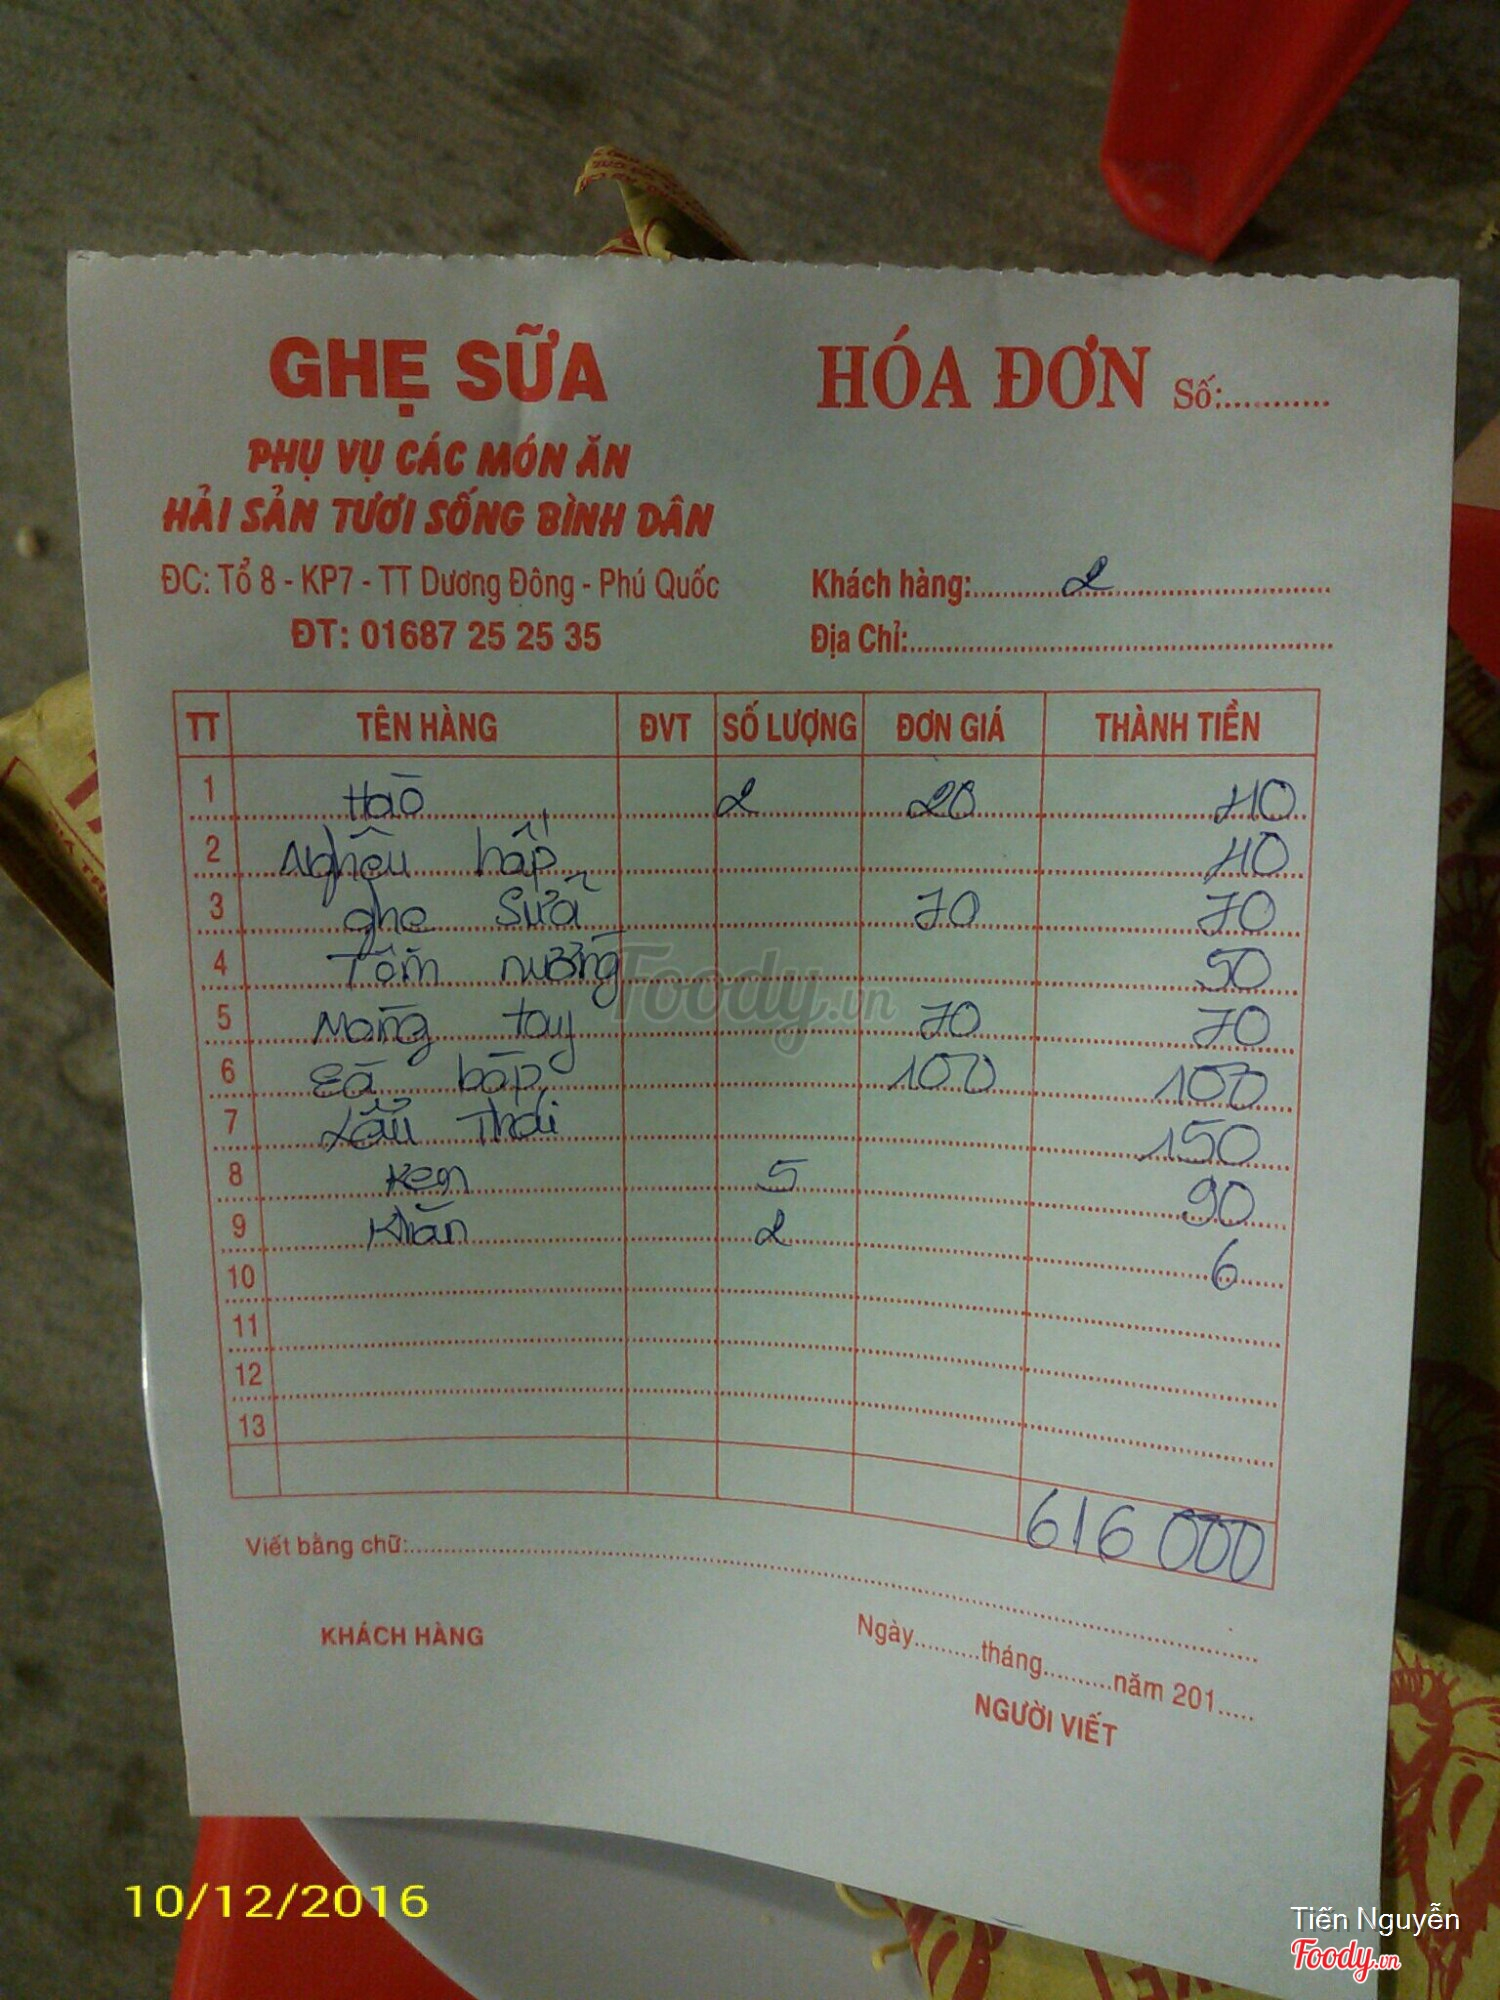 GHẸ SỮA
PHỤ VỤ CÁC MÓN ĂN
HẢI SẢN TƯƠI SỐNG BÌNH DÂN
ĐC: Tổ 8 - KP7 - TT Dương Đông - Phú Quốc
ĐT: 01687 25 25 35
HÓA ĐƠN Số:...........
Khách hàng: 2
Địa Chỉ:
TT TÊN HÀNG ĐVT SỐ LƯỢNG ĐƠN GIÁ THÀNH TIỀN
1 Hào 2 20 40
2 Nghêu hấp 40
3 ghe Sữa 70 70
4 Tôm nướng 50
5 Móng tay 70 70
6 100 100
7 Lẩu Thái 150
8 Ken 5 90
9 Khăn 2 6
10
11
12
13
616 000
Viết bằng chữ:
KHÁCH HÀNG
Ngày..........tháng..........năm 201.....
NGƯỜI VIẾT
Foody.vn
10/12/2016
Tiến Nguyễn
Foody.vn